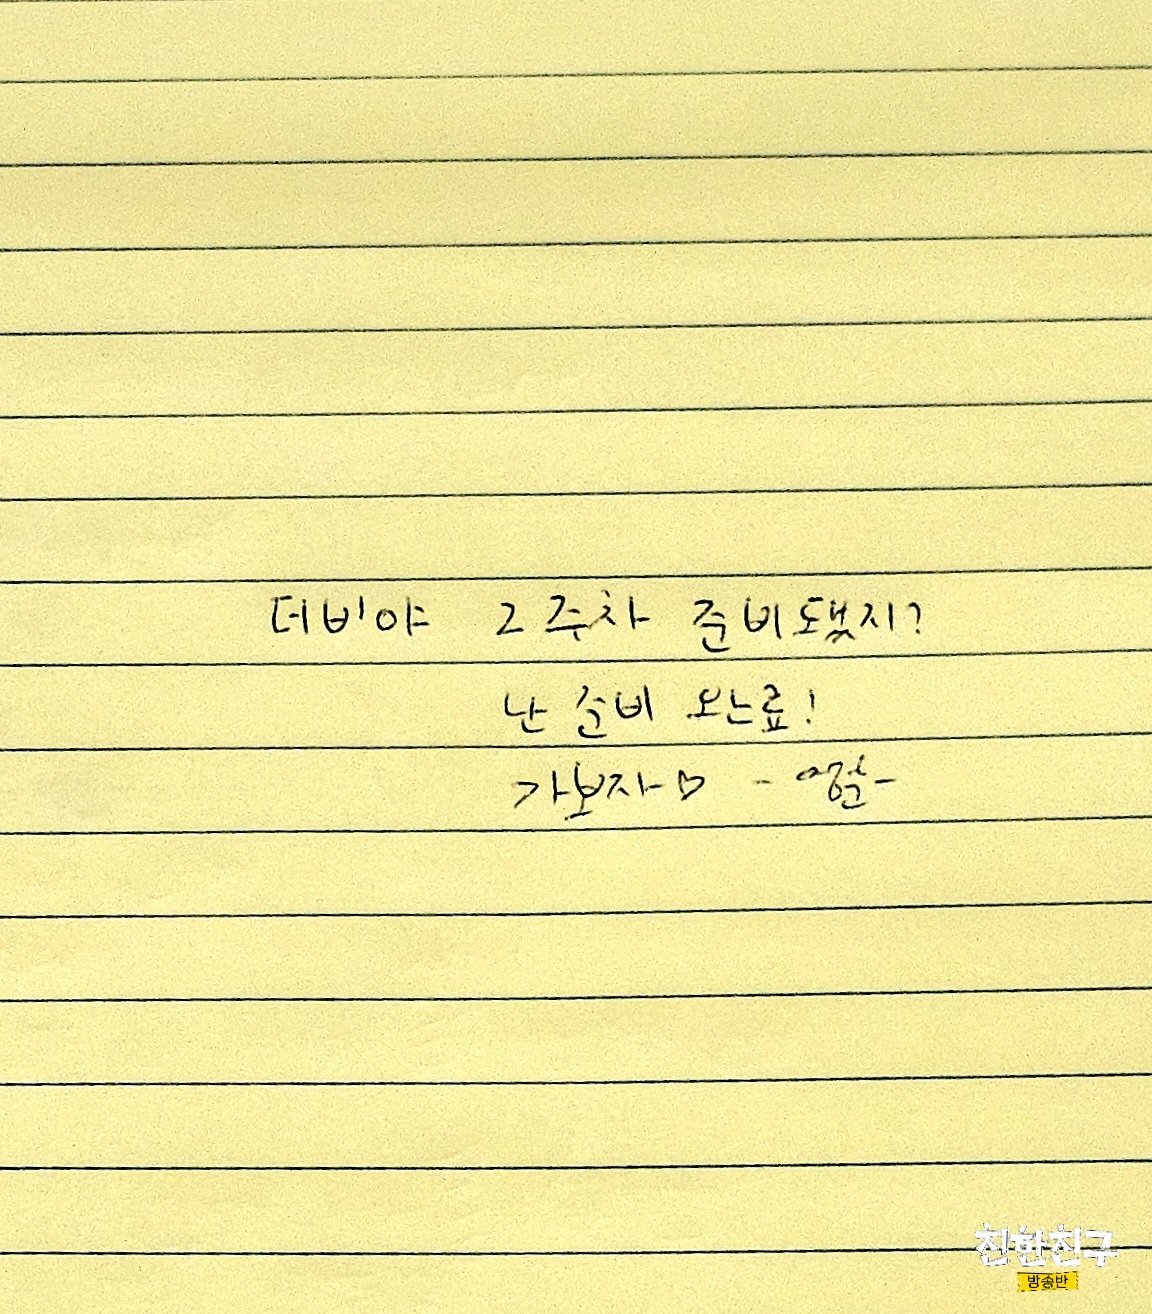 더비야 2주차 준비됐지?
난 준비 완료!
가보자♡ - 영훈 -
친한친구
방송반